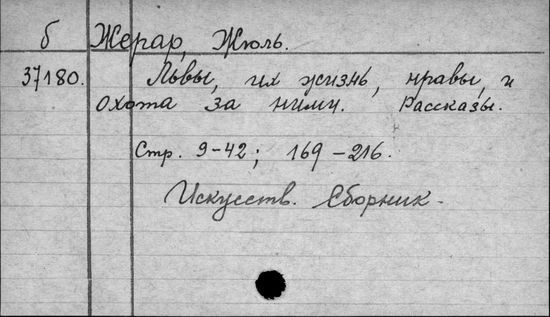 б Жерар, Жюль.
37180. Львы, их жизнь, нравы, и
охота за ними. Рассказы.
Стр. 9-42; 169-216.
Искусств. Сборник.